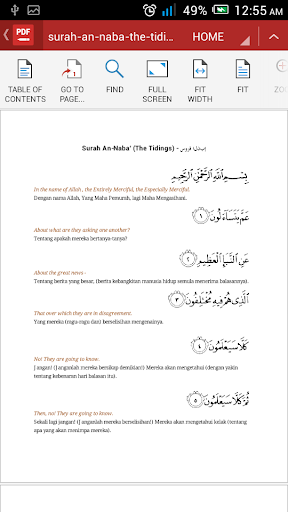 49% 12:55 AM
PDF surah-an-naba-the-tidi... HOME
TABLE OF CONTENTS
GO TO PAGE...
FIND
FULL SCREEN
FIT WIDTH
FIT
ZOO
Surah An-Naba' (The Tidings) -
بِسْمِ اللَّهِ الرَّحْمَٰنِ الرَّحِيمِ
In the name of Allah , the Entirely Merciful, the Especially Merciful.
Dengan nama Allah, Yang Maha Pemurah, lagi Maha Mengasihani.
عَمَّ يَتَسَاءَلُونَ ١
About what are they asking one another?
Tentang apakah mereka bertanya-tanya?
عَنِ النَّبَإِ الْعَظِيمِ ٢
About the great news -
Tentang berita yang besar, (berita kebangkitan manusia hidup semula menerima balasannya).
الَّذِي هُمْ فِيهِ مُخْتَلِفُونَ ٣
That over which they are in disagreement.
Yang mereka (ragu-ragu dan) berselisihan mengenainya.
كَلَّا سَيَعْلَمُونَ ٤
No! They are going to know.
Jangan! (Janganlah mereka bersikap demikian!) Mereka akan mengetahui (dengan yakin
tentang kebenaran hari balasan itu).
ثُمَّ كَلَّا سَيَعْلَمُونَ ٥
Then, no! They are going to know.
Sekali lagi jangan! (Janganlah mereka berselisihan!) Mereka akan mengetahui kelak (tentang
apa yang akan menimpa mereka).